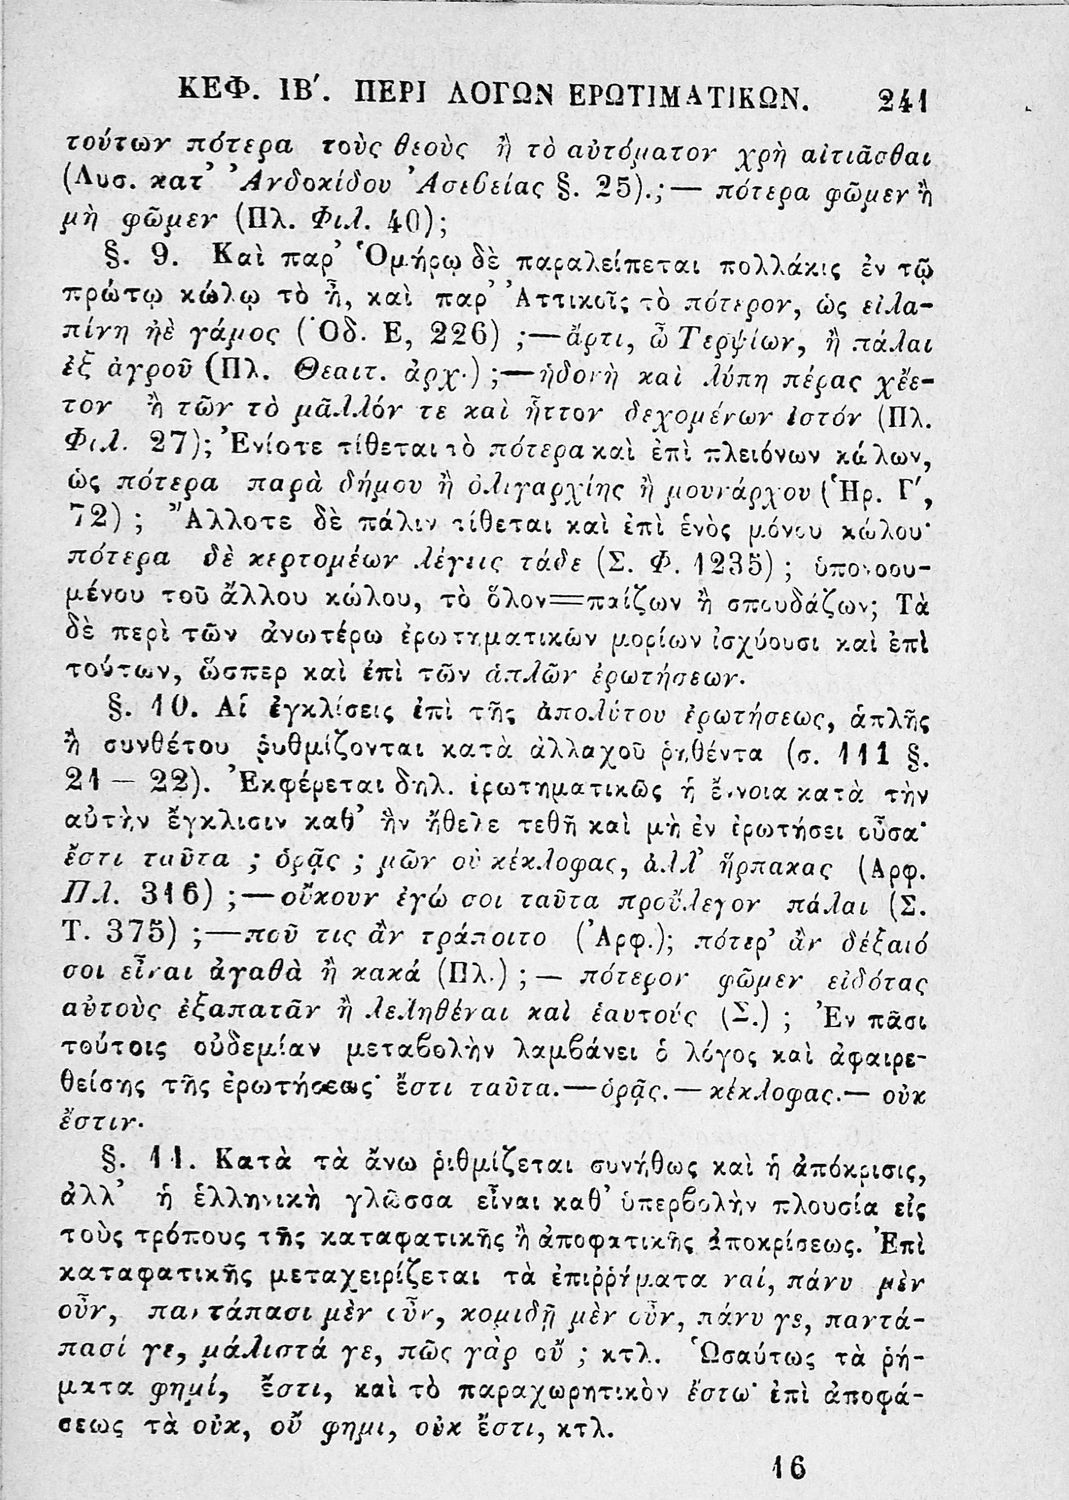 ΚΕΦ. ΙΒ′. ΠΕΡΙ ΛΟΓΩΝ ΕΡΩΤΙΜΑΤΙΚΩΝ. 241
τούτων πότερα τοὺς θεοὺς ἢ τὸ αὐτόματον χρὴ αἰτιᾶσθαι
(Λυσ. κατ᾽ Ἀνδοκίδου Ἀσεβείας §. 25).;— πότερα φῶμεν ἢ
μὴ φῶμεν (Πλ. Φιλ. 40);
§. 9. Καὶ παρ᾽ Ὁμήρῳ δὲ παραλείπεται πολλάκις ἐν τῷ
πρώτῳ κώλῳ τὸ ἦ, καὶ παρ᾽ Ἀττικοῖς τὸ πότερον, ὡς εἰλα-
πίνη ἠὲ γάμος (Ὀδ. Ε, 226) ;—ἄρτι, ὦ Τερψίων, ἢ πάλαι
ἐξ ἀγροῦ (Πλ. Θεαιτ. ἀρχ.) ;—ἡδονὴ καὶ λύπη πέρας χἔε-
τον ἢ τῶν τὸ μᾶλλόν τε καὶ ἧττον δεχομένων ἰστόν (Πλ.
Φιλ. 27); Ἐνίοτε τίθεται τὸ πότερα καὶ ἐπὶ πλειόνων κώλων,
ὡς πότερα παρὰ δήμου ἢ ὀλιγαρχίης ἢ μουνάρχου (Ἡρ. Γ′,
72) ; Ἄλλοτε δὲ πάλιν τίθεται καὶ ἐπὶ ἑνὸς μόνου κώλου·
πότερα δὲ κερτομέων λέγεις τάδε (Σ. Φ. 1235) ; ὑπονοου-
μένου τοῦ ἄλλου κώλου, τὸ ὅλον=παίζων ἢ σπουδάζων; Τὰ
δὲ περὶ τῶν ἀνωτέρω ἐρωτηματικῶν μορίων ἰσχύουσι καὶ ἐπὶ
τούτων, ὥσπερ καὶ ἐπὶ τῶν ἁπλῶν ἐρωτήσεων.
§. 10. Αἱ ἐγκλίσεις ἐπὶ τῆς ἀπολύτου ἐρωτήσεως, ἁπλῆς
ἢ συνθέτου ῥυθμίζονται κατὰ ἀλλαχοῦ ῥηθέντα (σ. 111 §.
21 — 22). Ἐκφέρεται δηλ. ἐρωτηματικῶς ἡ ἔννοια κατὰ τὴν
αὐτὴν ἔγκλισιν καθ᾽ ἣν ἤθελε τεθῆ καὶ μὴ ἐν ἐρωτήσει οὖσα·
ἔστι ταῦτα ; ὁρᾷς ; μῶν οὐ κέκλοφας, ἀλλ᾽ ἥρπακας (Αρφ.
Πλ. 316) ;—οὔκουν ἐγώ σοι ταῦτα προὔλεγον πάλαι (Σ.
Τ. 375) ;—ποῦ τις ἂν τράποιτο (Ἀρφ.); πότερ᾽ ἂν δέξαιό
σοι εἶναι ἀγαθὰ ἢ κακά (Πλ.) ; — πότερον φῶμεν εἰδότας
αὐτοὺς ἐξαπατᾶν ἢ λεληθέναι καὶ ἑαυτούς (Σ.) ; Ἐν πᾶσι
τούτοις οὐδεμίαν μεταβολὴν λαμβάνει ὁ λόγος καὶ ἀφαιρε-
θείσης τῆς ἐρωτήσεως· ἔστι ταῦτα.—ὁρᾷς.—κέκλοφας.— οὐκ
ἔστιν.
§. 11. Κατὰ τὰ ἄνω ῥιθμίζεται συνήθως καὶ ἡ ἀπόκρισις,
ἀλλ᾽ ἡ ἑλληνικὴ γλῶσσα εἶναι καθ᾽ ὑπερβολὴν πλουσία εἰς
τοὺς τρόπους τῆς καταφατικῆς ἢ ἀποφατικῆς ἀποκρίσεως. Ἐπὶ
καταφατικῆς μεταχειρίζεται τὰ ἐπιῤῥήματα ναί, πάνυ μὲν
οὖν, παντάπασι μὲν οὖν, κομιδῇ μὲν οὖν, πάνυ γε, παντά-
πασί γε, μάλιστά γε, πῶς γὰρ οὔ ; κτλ. Ὡσαύτως τὰ ῥή-
ματα φημί, ἔστι, καὶ τὸ παραχωρητικὸν ἔστω· ἐπὶ ἀποφά-
σεως τὰ οὐκ, οὔ φημι, οὐκ ἔστι, κτλ.
16